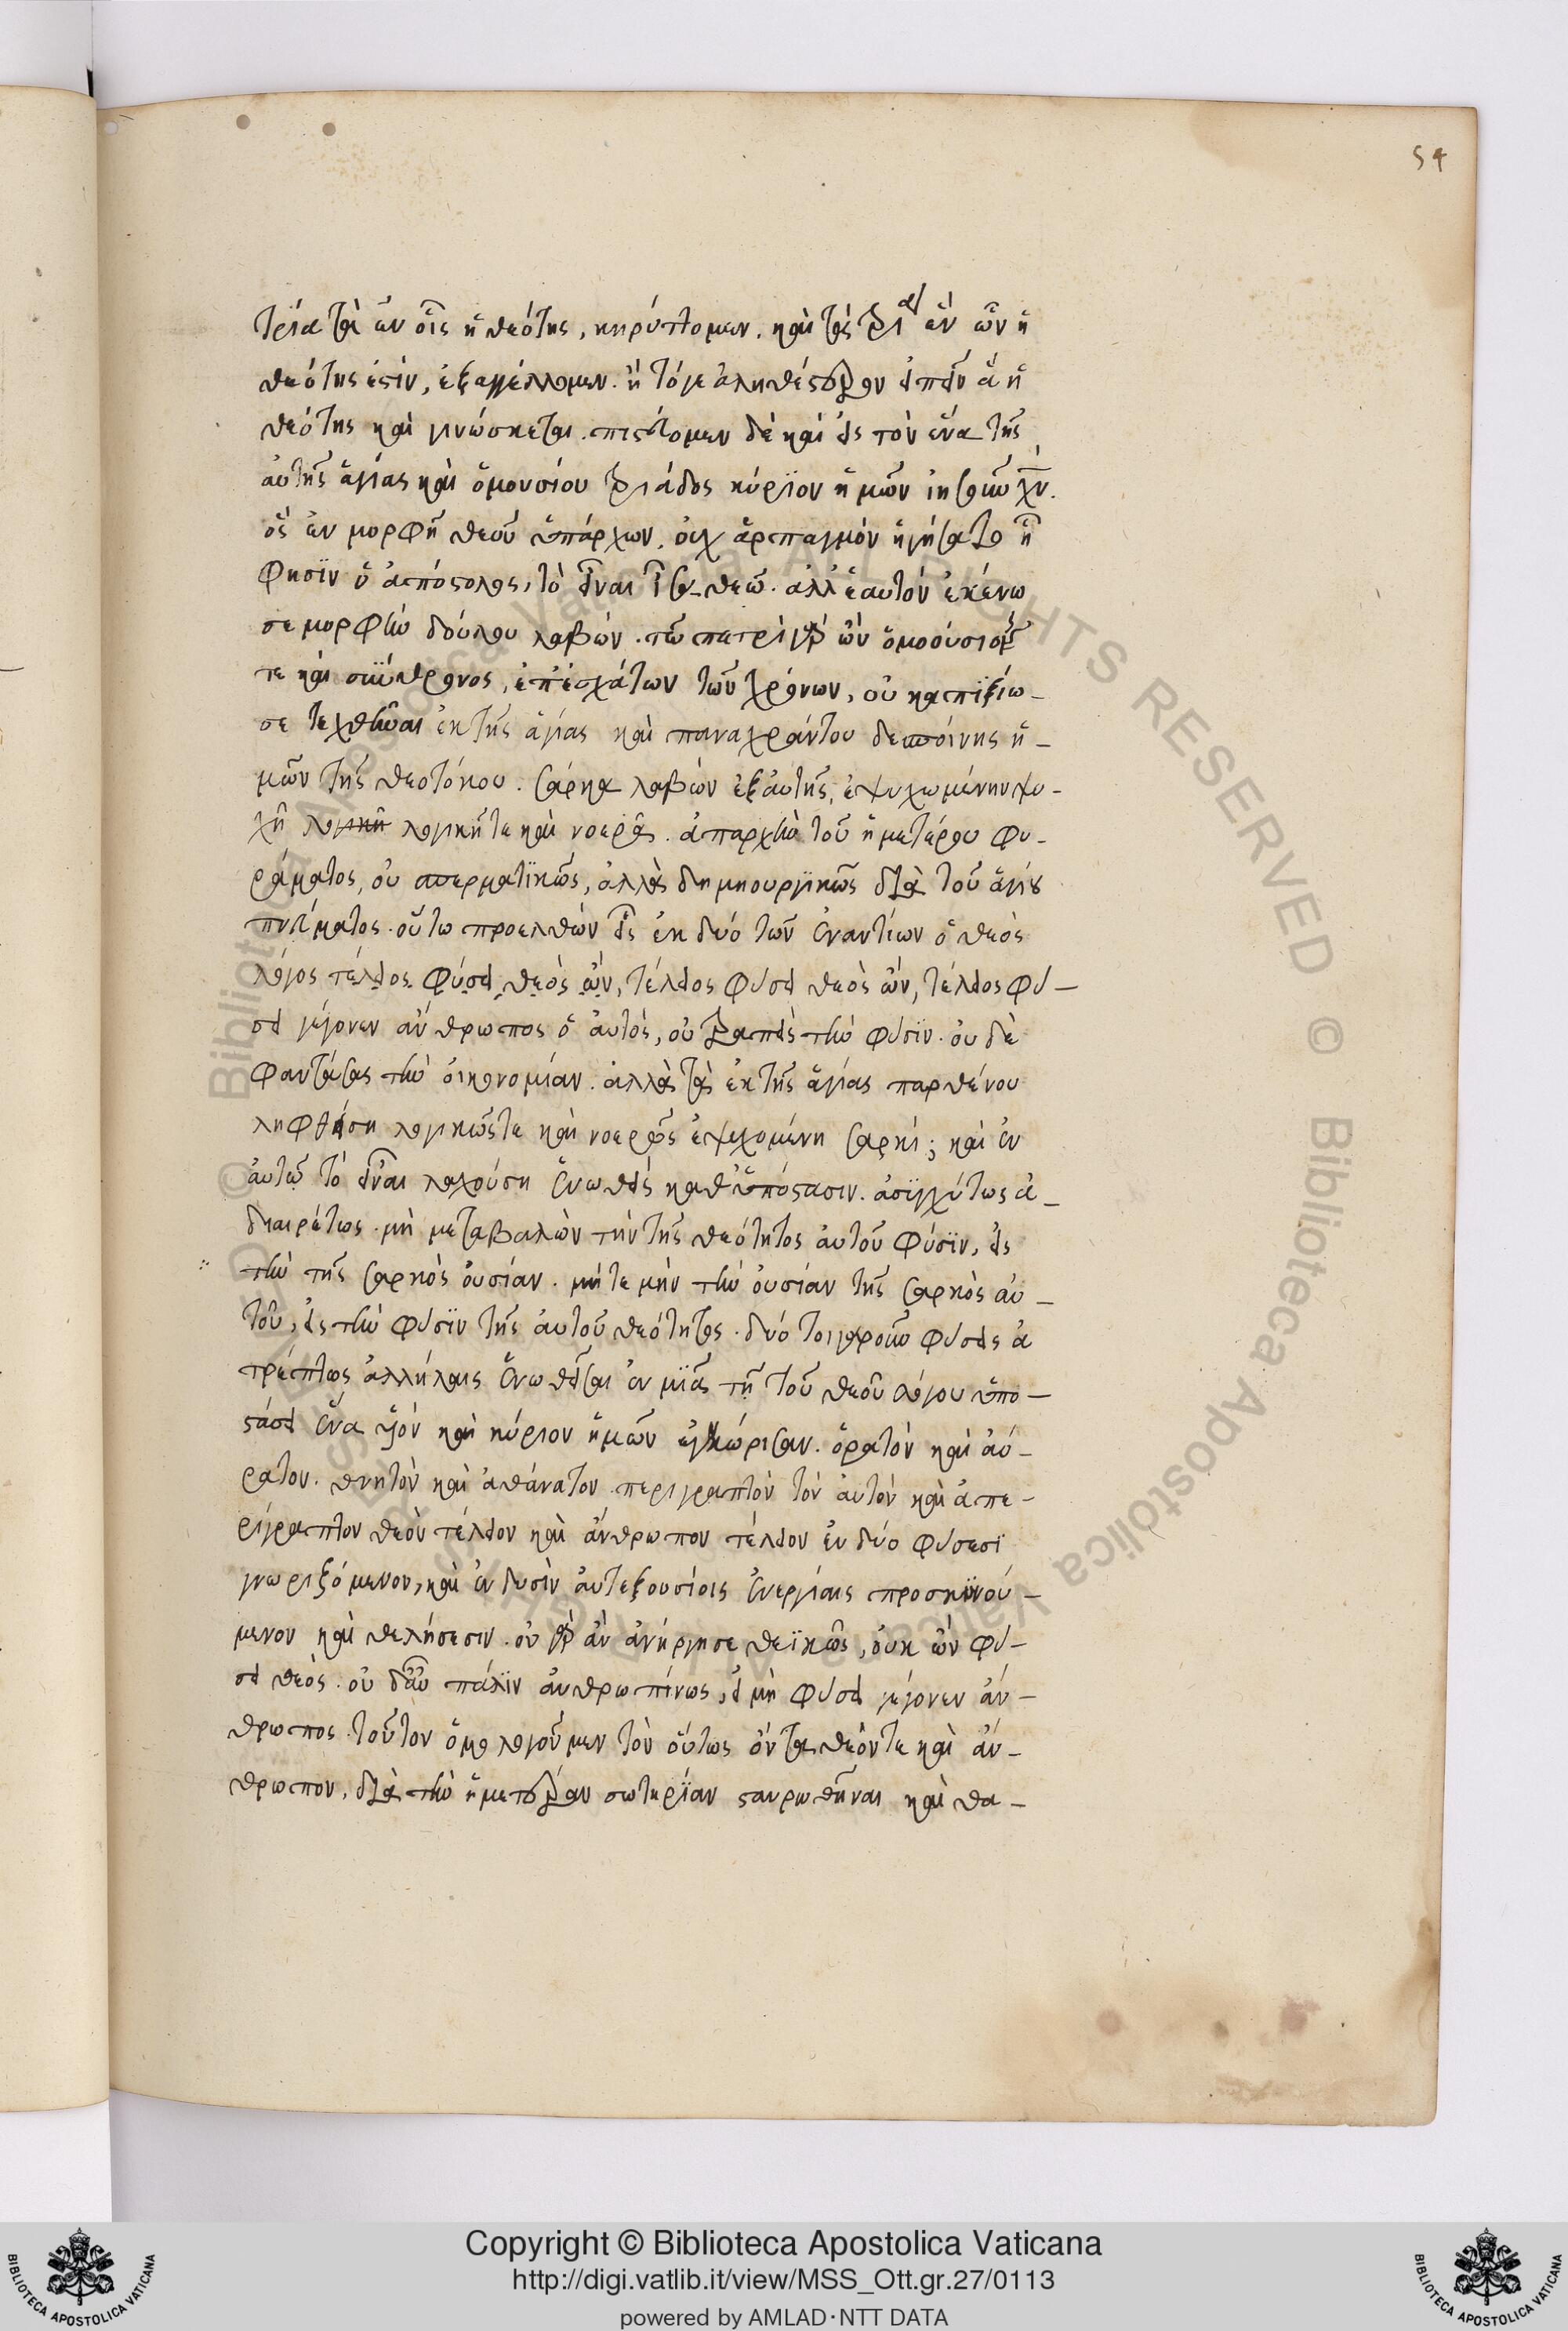 54
τρία τὰ ἐν οἷς ἡ θεότης, κηρύττομεν. καὶ τὰς τρί ἓν ὧν ἡ
θεότης ἐστίν, ἐξαγγέλλομεν. ἢ τόγε ἀληθέστερον εἰπεῖν ἃ ἡ
θεότης καὶ γινώσκεται. πιστεύομεν δὲ καὶ εἰς τὸν ἕνα τῆς
αὐτῆς ἁγίας καὶ ὁμουσίου τριάδος κύριον ἡμῶν ἰησοῦν χν.
ὃς ἐν μορφῇ θεοῦ ὑπάρχων, οὐχ ἁρπαγμὸν ἡγήσατο ᾗ
φησϊν ὁ ἀπόστολος, τὸ εἶναι ἶσα θεῷ. ἀλλ' ἑαυτὸν ἐκένω
σε μορφὴν δούλου λαβών. τῷ πατρὶ γὰρ ὢν ὁμοούσιος
τε καὶ σύνθρονος, ἐπ' ἐσχάτων τῶν χρόνων, οὐ κατηξίω-
σε τεχθῆναι ἐκ τῆς ἁγίας καὶ παναχράντου δεσποίνης ἡ-
μῶν τῆς θεοτόκου. σάρκα λαβὼν ἐξ αὐτῆς, ἐψυχωμένην ψυ-
χῇ λογικῇ λογικῇ τε καὶ νοερᾷ. ἀπαρχὴν τοῦ ἡμετέρου φυ-
ράματος, οὐ σπερματϊκῶς, ἀλλὰ δημηουργϊκῶς διὰ τοῦ ἁγίου
πνεύματος. οὕτω προελθὼν εἷς ἐκ δύο τῶν ἐναντίων ὁ θεὸς
λόγος τέλειος φύσει θεὸς ὤν, τέλειος φύσει θεὸς ὤν, τέλειος φύ-
σει γέγονεν ἄνθρωπος ὁ αὐτός, οὐ τραπεὶς τὴν φύσιν. οὐδὲ
φαντάσας τὴν οἰκονομίαν. ἀλλὰ τὰ ἐκ τῆς ἁγίας παρθένου
ληφθείση λογικῶς τε καὶ νοερῶς ἐψυχομένη σαρκί; καὶ ἐν
αὐτῷ τὸ εἶναι λαχούση ἑνωθεὶς καθ' ὑπόστασιν. ἀσϋγχύτως ἀ-
διαιρέτως. μὴ μεταβαλὼν τὴν τῆς θεότητος αὐτοῦ φύσϊν, εἰς
τὴν τῆς σαρκὸς οὐσίαν. μήτε μὴν τὴν οὐσίαν τῆς σαρκὸς αὐ-
τοῦ, εἰς τὴν φύσϊν τῆς αὐτοῦ θεότητος. δύο τοιγαροῦν φύσεις ἀ
τρέπτως ἀλλήλαις ἑνωθεῖσαι ἐν μϊᾷ τῇ τοῦ θεοῦ λόγου ὑπο-
στάσει ἕνα υἱὸν καὶ κύριον ἡμῶν ἐγνώρισαν. ὁρατὸν καὶ ἀό-
ρατον. θνητὸν καὶ ἀθάνατον. περιγραπτὸν τὸν αὐτὸν καὶ ἀπε-
ρίγραπτον θεὸν τέλειον καὶ ἄνθρωπον τέλειον ἐν δύο φύσεσϊ
γνωριζόμενον, καὶ ἐν δυσὶν αὐτεξουσίοις ἐνεργίαις προσκϋνού-
μενον καὶ θελήσεσιν. οὐ γὰρ ἂν ἐνήργησε θεϊκῶς, οὐκ ὢν φύ-
σει θεός. οὐ δ' ἂν πάλϊν ἀνθρωπίνως, εἰ μὴ φύσει γέγονεν ἄν-
θρωπος. τοῦτον ὁμολογοῦμεν τὸν οὕτως ὄντα θεόν τε καὶ ἄν-
θρωπον, διὰ τὴν ἡμετέραν σωτηρίαν σταυρωθῆναι καὶ θα-
Copyright © Biblioteca Apostolica Vaticana
http://digi.vatlib.it/view/MSS_Ott.gr.27/0113
powered by AMLAD·NTT DATA